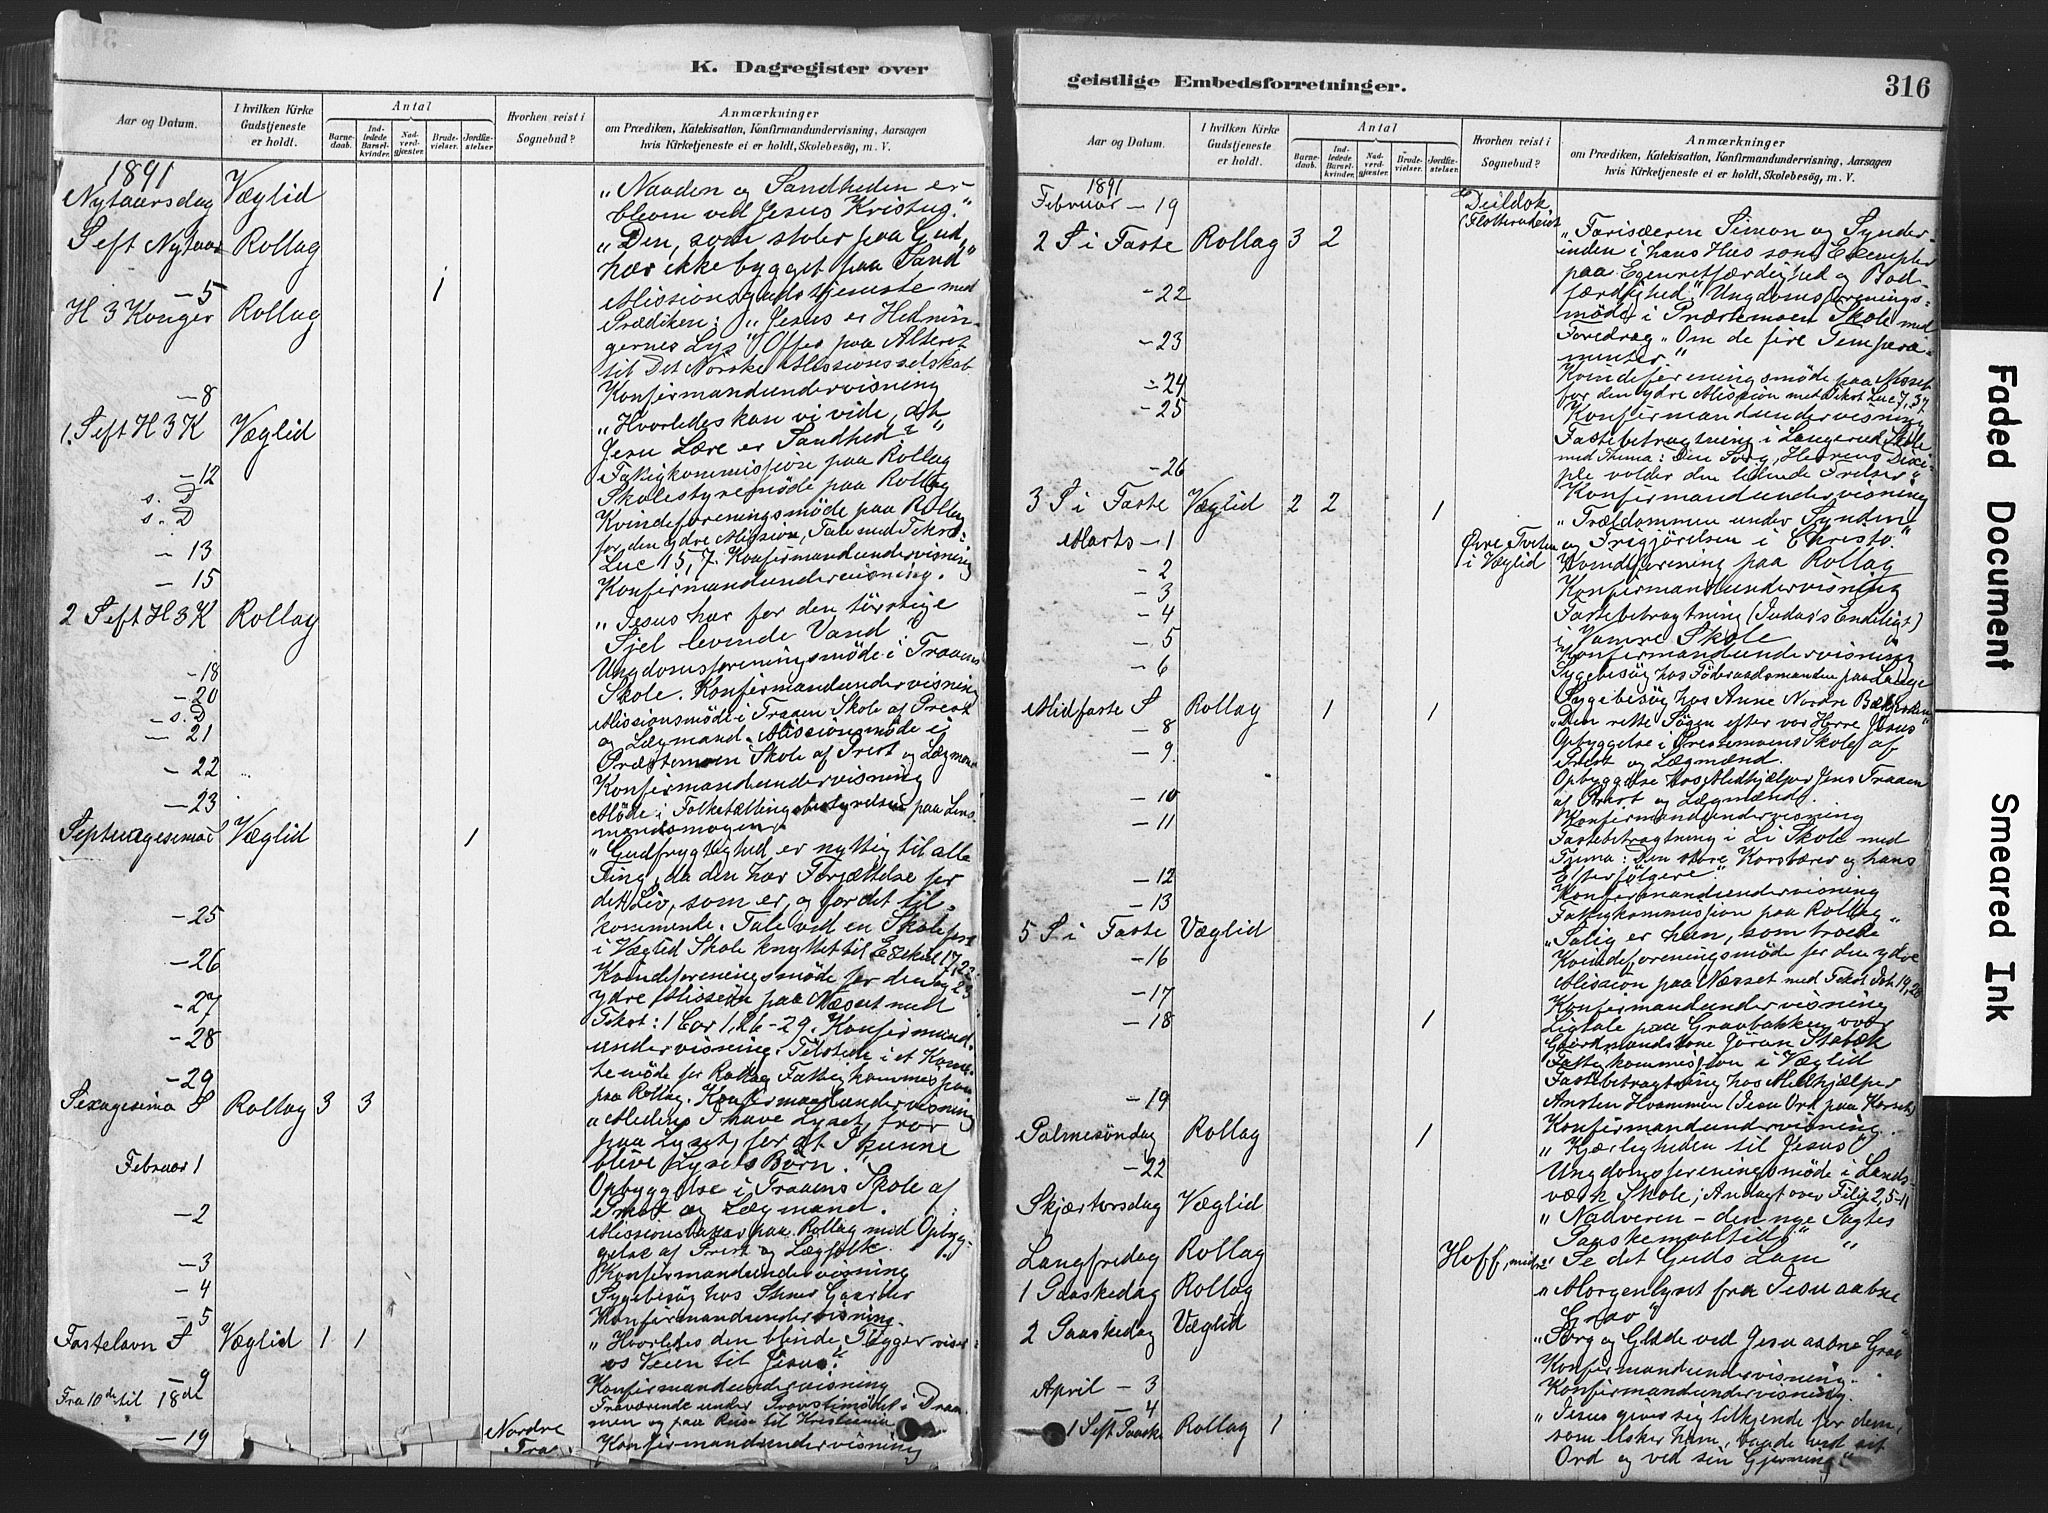 K. Dagregister over
Aar og Datum.
I hvilken Kirke Gudstjeneste er holdt.
Antal
Barnedaab.
Indledede Barselkvinder.
Nadverdgjæster.
Brudevielser.
Jordfæstelser.
Hvorhen reist i Sognebud?
Anmærkninger
om Prædiken, Katekisation, Konfirmandundervisning, Aarsagen
hvis Kirketjeneste ei er holdt, Skolebesøg, m. V.
1891
Nytaarsdag Væglid „Naaden og Sandheden er
bleven ved Jesus Kristus.“
S eft Nytaar Rollag „Den, som stoler paa Gud,
har ikke bygget paa Sand“
- 5 1 Missionsgudstjeneste med
H 3 Konger Rollag Prædiken: „Jesus er Hednin-
gernes Lys“ Offer paa Alteret
til Det Norske Missionsselskab
- 8 Konfirmandundervisning
1. S eft H 3 K Væglid „Hvorledes kan vi vide, at
Jesu Lære er Sandhed?“
- 12 Fattigkommission paa Rollag
s. D Skolestyremøde paa Rollag
s. D Kvindeforeningsmøde paa Rollag
for den ydre Mission, Tale med Tekst:
- 13 Luc 15,7. Konfirmandundervisning
- 15 Konfirmandundervisning.
2 S eft H 3 K Rollag „Jesus har for den tørstige
Sjel levende Vand“
Ungdomsforeningsmøde i Traaens
- 18 Skole. Konfirmandundervisning
- 20 Missionsmøde i Traaen Skole af Prest
- s. D og Lægmand. Missionsmøde i
- 21 Præstemoen Skole af Prest og Lægmand
- 22 Konfirmandundervisning
- 23 Møde i Folketællingsbestyrelsen paa Lens-
mandsmogen
Septuagesima S Væglid 1 „Gudfrygtighed er nyttig til alle
Ting, da den har Forjættelse for
det Liv, som er, og for det til-
- 25 kommende. Tale ved en Skolefest
i Væglid Skole knyttet til Ezekiel 17,22-
- 26 Kvindeforeningsmøde for den og 23
ydre Mission paa Næsset med
- 27 Tekst: 1 Cor 1,26-29. Konfirmand-
- 28 undervisning. Tilstede i et Komi-
te møde for Rollag Fattigkommission
- 29 paa Rollag. Konfirmandundervisning
Sexagesima S Rollag 3 3 „Medens I have Lyset, tror
paa Lyset, for at I kunne
blive Lysets Børn.“
Februar 1 Opbyggelse i Traaens Skole af
Prest og Lægmand.
- 2 Missionsbasar paa Rollag med Opbyg-
gelse af Prest og Lægfolk.
- 3 Konfirmandundervisning
- 4 Sygebesøg hos Stener Gaarder
- 5 Konfirmandundervisning.
Fastelavn S Væglid 1 1 „Hvorledes den blinde Tigger viser
os Veien til Jesus.“
- 9 Konfirmandundervisning
Fra 10de til 18de Fraværende under Provstimødet i Dram-
men og paa Reise til Kristiania
- 19 Nordre Traa Konfirmandundervisning
geistlige Embedsforretninger.
316
Aar og Datum.
I hvilken Kirke Gudstjeneste er holdt.
Antal
Barnedaab.
Indledede Barselkvinder.
Nadverdgjæster.
Brudevielser.
Jordfæstelser.
Hvorhen reist i Sognebud?
Anmærkninger
om Prædiken, Katekisation, Konfirmandundervisning, Aarsagen
hvis Kirketjeneste ei er holdt, Skolebesøg, m. V.
1891
Februar - 19
2 S i Faste Rollag 3 2 „Farisæeren Simon og Synder-
inden i hans Hus som Exempler
paa Egenretfærdighed og Bod-
- 22 færdighed“ Ungdomsforenings-
møde i Præstemoen Skole med
- 23 Foredrag „Om de fire Tempera-
menter“
- 24 Kvindeforeningsmøde paa Næsset
for den ydre Mission med Tekst Luc 7,37.
- 25 Konfirmandundervisning
Fastebetragtning i Langerud Skole
- 26 med Thema: Den Sorg, Herrens Disci-
ple volder den lidende Frelser“
3 S i Faste Væglid 2 2 1 Konfirmandundervisning
„Trældommen under Synden
Marts - 1 Øvre Tveten i Væglid og Frigjørelsen i Christo.“
- 2 Kvindeforening paa Rollag
- 3 Konfirmandundervisning
- 4 Fastebetragtning (Judas's Endeligt)
- 5 i Vamre Skole
- 6 Konfirmandundervisning
Sygebesøg hos Föderaadsmanden paa Lange
Midfaste S Rollag 1 1 Sygebesøg hos Anne Nordre Bækkesteen
- 8 „Den rette Søgen efter vor Herre Jesus“
- 9 Opbyggelse i Præstemoens Skole af
Prest og Lægmænd.
- 10 Opbyggelse hos Medhjælper Jens Traaen
af Prest og Lægmænd.
- 11 Konfirmandundervisning
Fastebetragtning i Li Skole med
- 12 Tema: Den store Korsbærer og hans
Efterfølgere“
- 13 Konfirmandundervisning
Fattigkommission paa Rollag
5 S i Faste Væglid „Salig er han, som troede“
- 16 Kvindeforeningsmøde for den ydre
- 17 Mission paa Næsset med Tekst Joh 19,28
Konfirmandundervisning
- 18 1 Ligtale paa Gravbakken over
Gaardmandskone Jøran Stabæk
Fattigkommission i Væglid
Fastebetragtning hos Medhjælper
- 19 Ansten Hvammen (Jesu Ord paa Korset)
Konfirmandundervisning.
Palmesöndag Rollag 1 „Kjærligheden til Jesus“
- 22 Ungdomsforeningsmøde i Lands-
værk Skole; Andagt over Filip 2,5-11
Skjærtorsdag Væglid „Nadveren - den nye Pagtes
Paaskemaaltid“
Langfredag Rollag Hoff, midre „Se det Guds Lam“
1 Paaskedag Rollag „Morgenlyset fra Jesu aabne
Grav“
2 Paaskedag Væglid „Sorg og Glæde ved Jesu aabne Grav“
Konfirmandundervisning.
April - 3 Konfirmandundervisning.
- 4
1 S eft Paaske Rollag 1 „Jesus giver sig tilkjende for dem,
som elsker ham, baade ved sit
Ord og ved sin Gjerning“
Faded Document
Smeared Ink